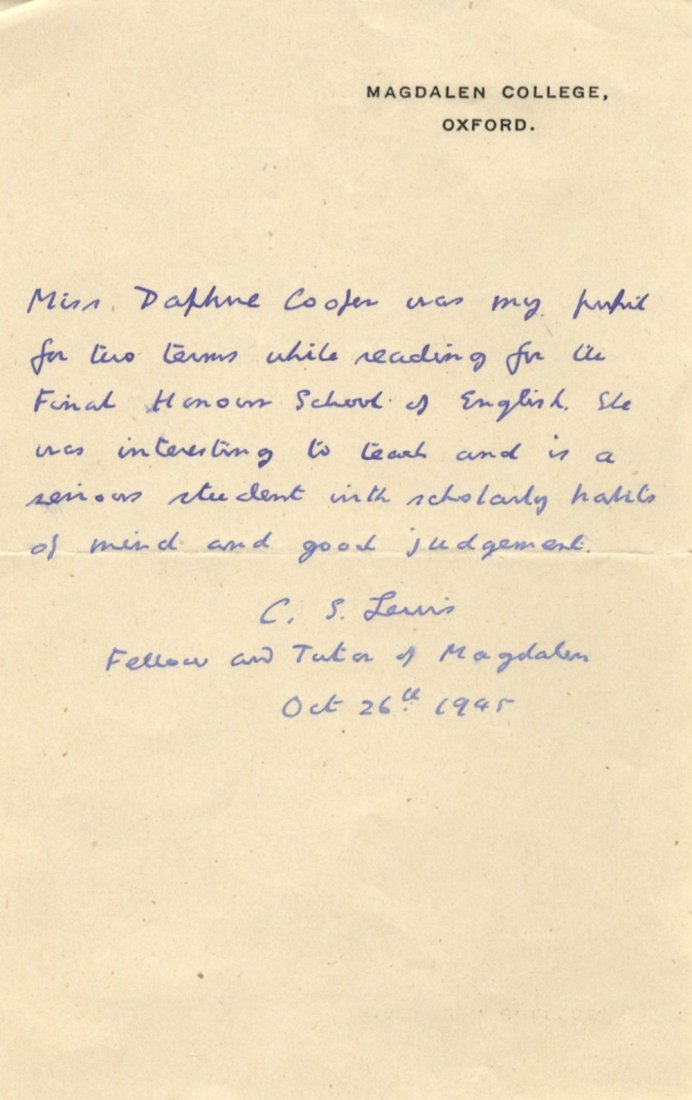 MAGDALEN COLLEGE,
OXFORD.
Miss Daphne Cooper was my pupil
for two terms while reading for the
Final Honour School of English. She
was interesting to teach and is a
serious student with scholarly habits
of mind and good judgement.
C. S. Lewis
Fellow and Tutor of Magdalen
Oct 26th 1945